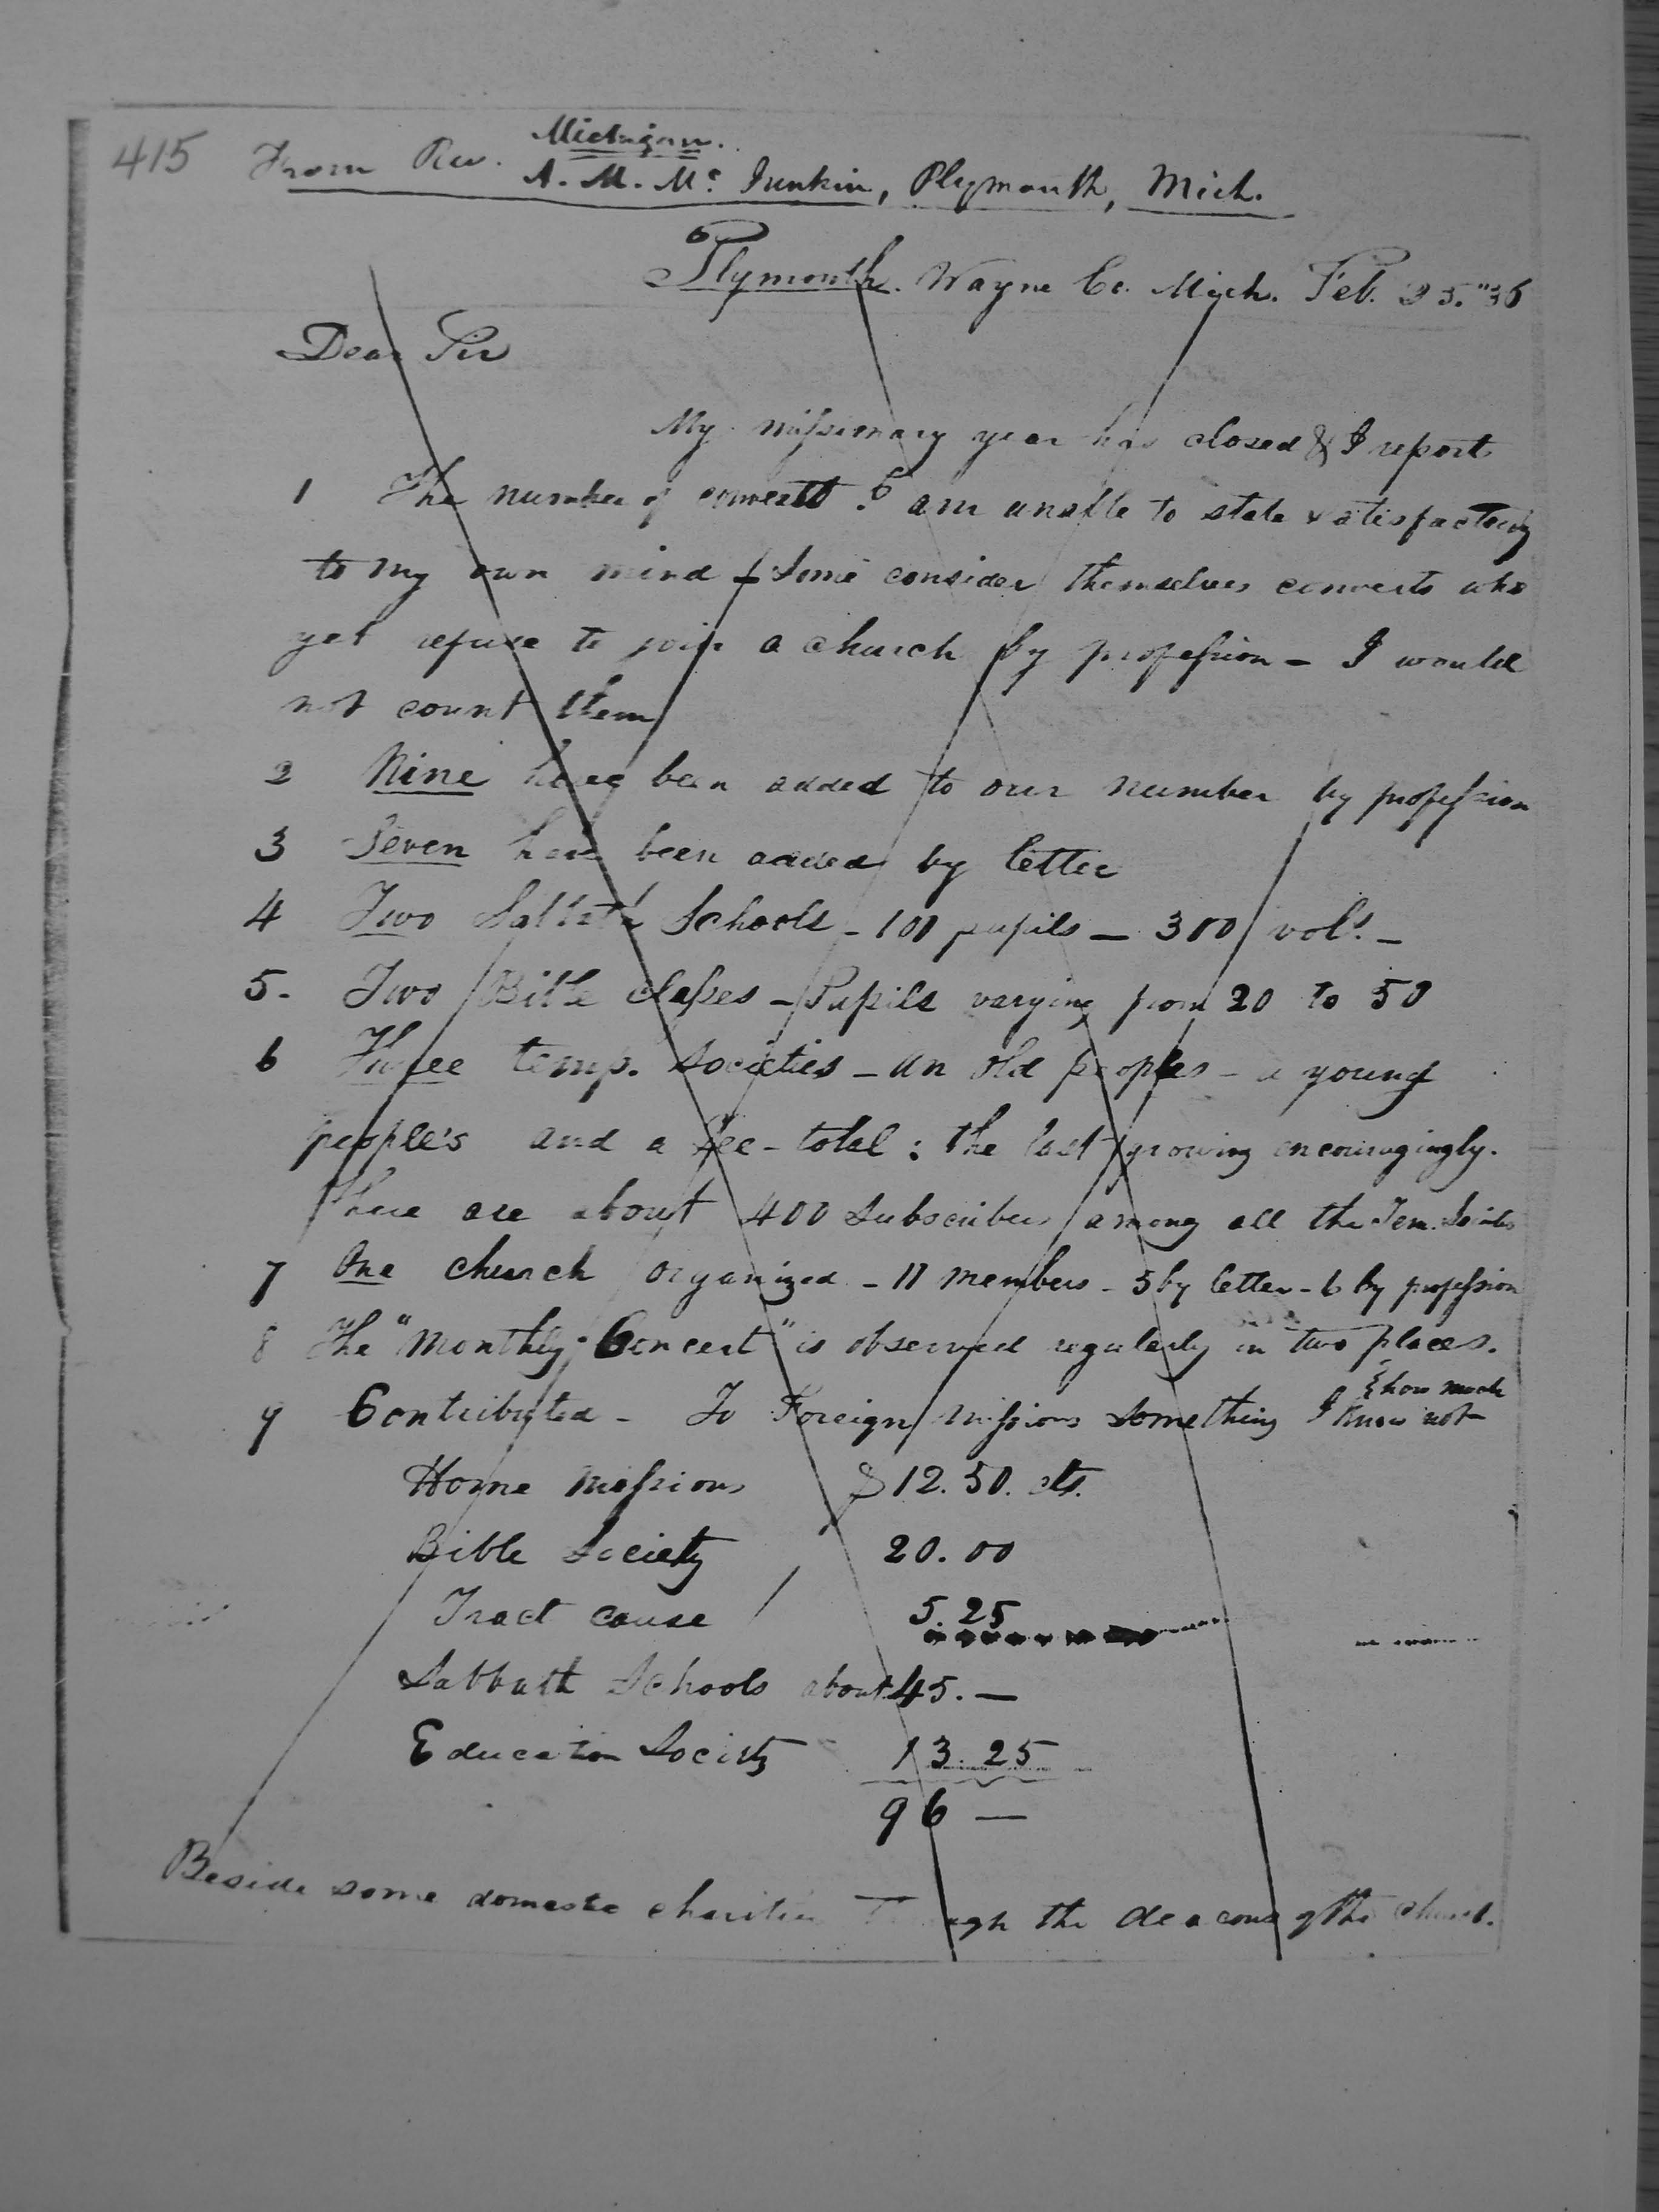 Michigan.
415 From Rev. A. M. Mc Junkin, Plymouth, Mich.
Plymouth. Wayne Co. Mich. Feb. 25. "36
Dear Sir
My missionary year has closed & I report
1 The number of convertt I am unable to state satisfactory
to my own mind - Some consider themselves converts who
yet refuse to join a church by profession - I would
not count them
2 Nine have been added to our number by profession
3 Seven have been added by letter
4 Two Sabbath Schools - 100 pupils - 300 vols. -
5. Two Bible classes - Pupils varying from 20 to 50
6 Three temp. societies - an old peoples - a young
people's and a tee-total : the last growing encouragingly.
There are about 400 Subscribers among all the Tem. Socities
7 One church organized - 11 members - 5 by letter - 6 by profession
8 The "Monthly Concert" is observed regularly in two places.
9 Contributed - To Foreign missions something I know not
how much
Home Missions $12.50. cts.
Bible Society 20.00
Tract cause 5.25
Sabbath Schools about 45. —
Education Society 13.25
96 —
Beside some domestic charities Through the deacons of the church.